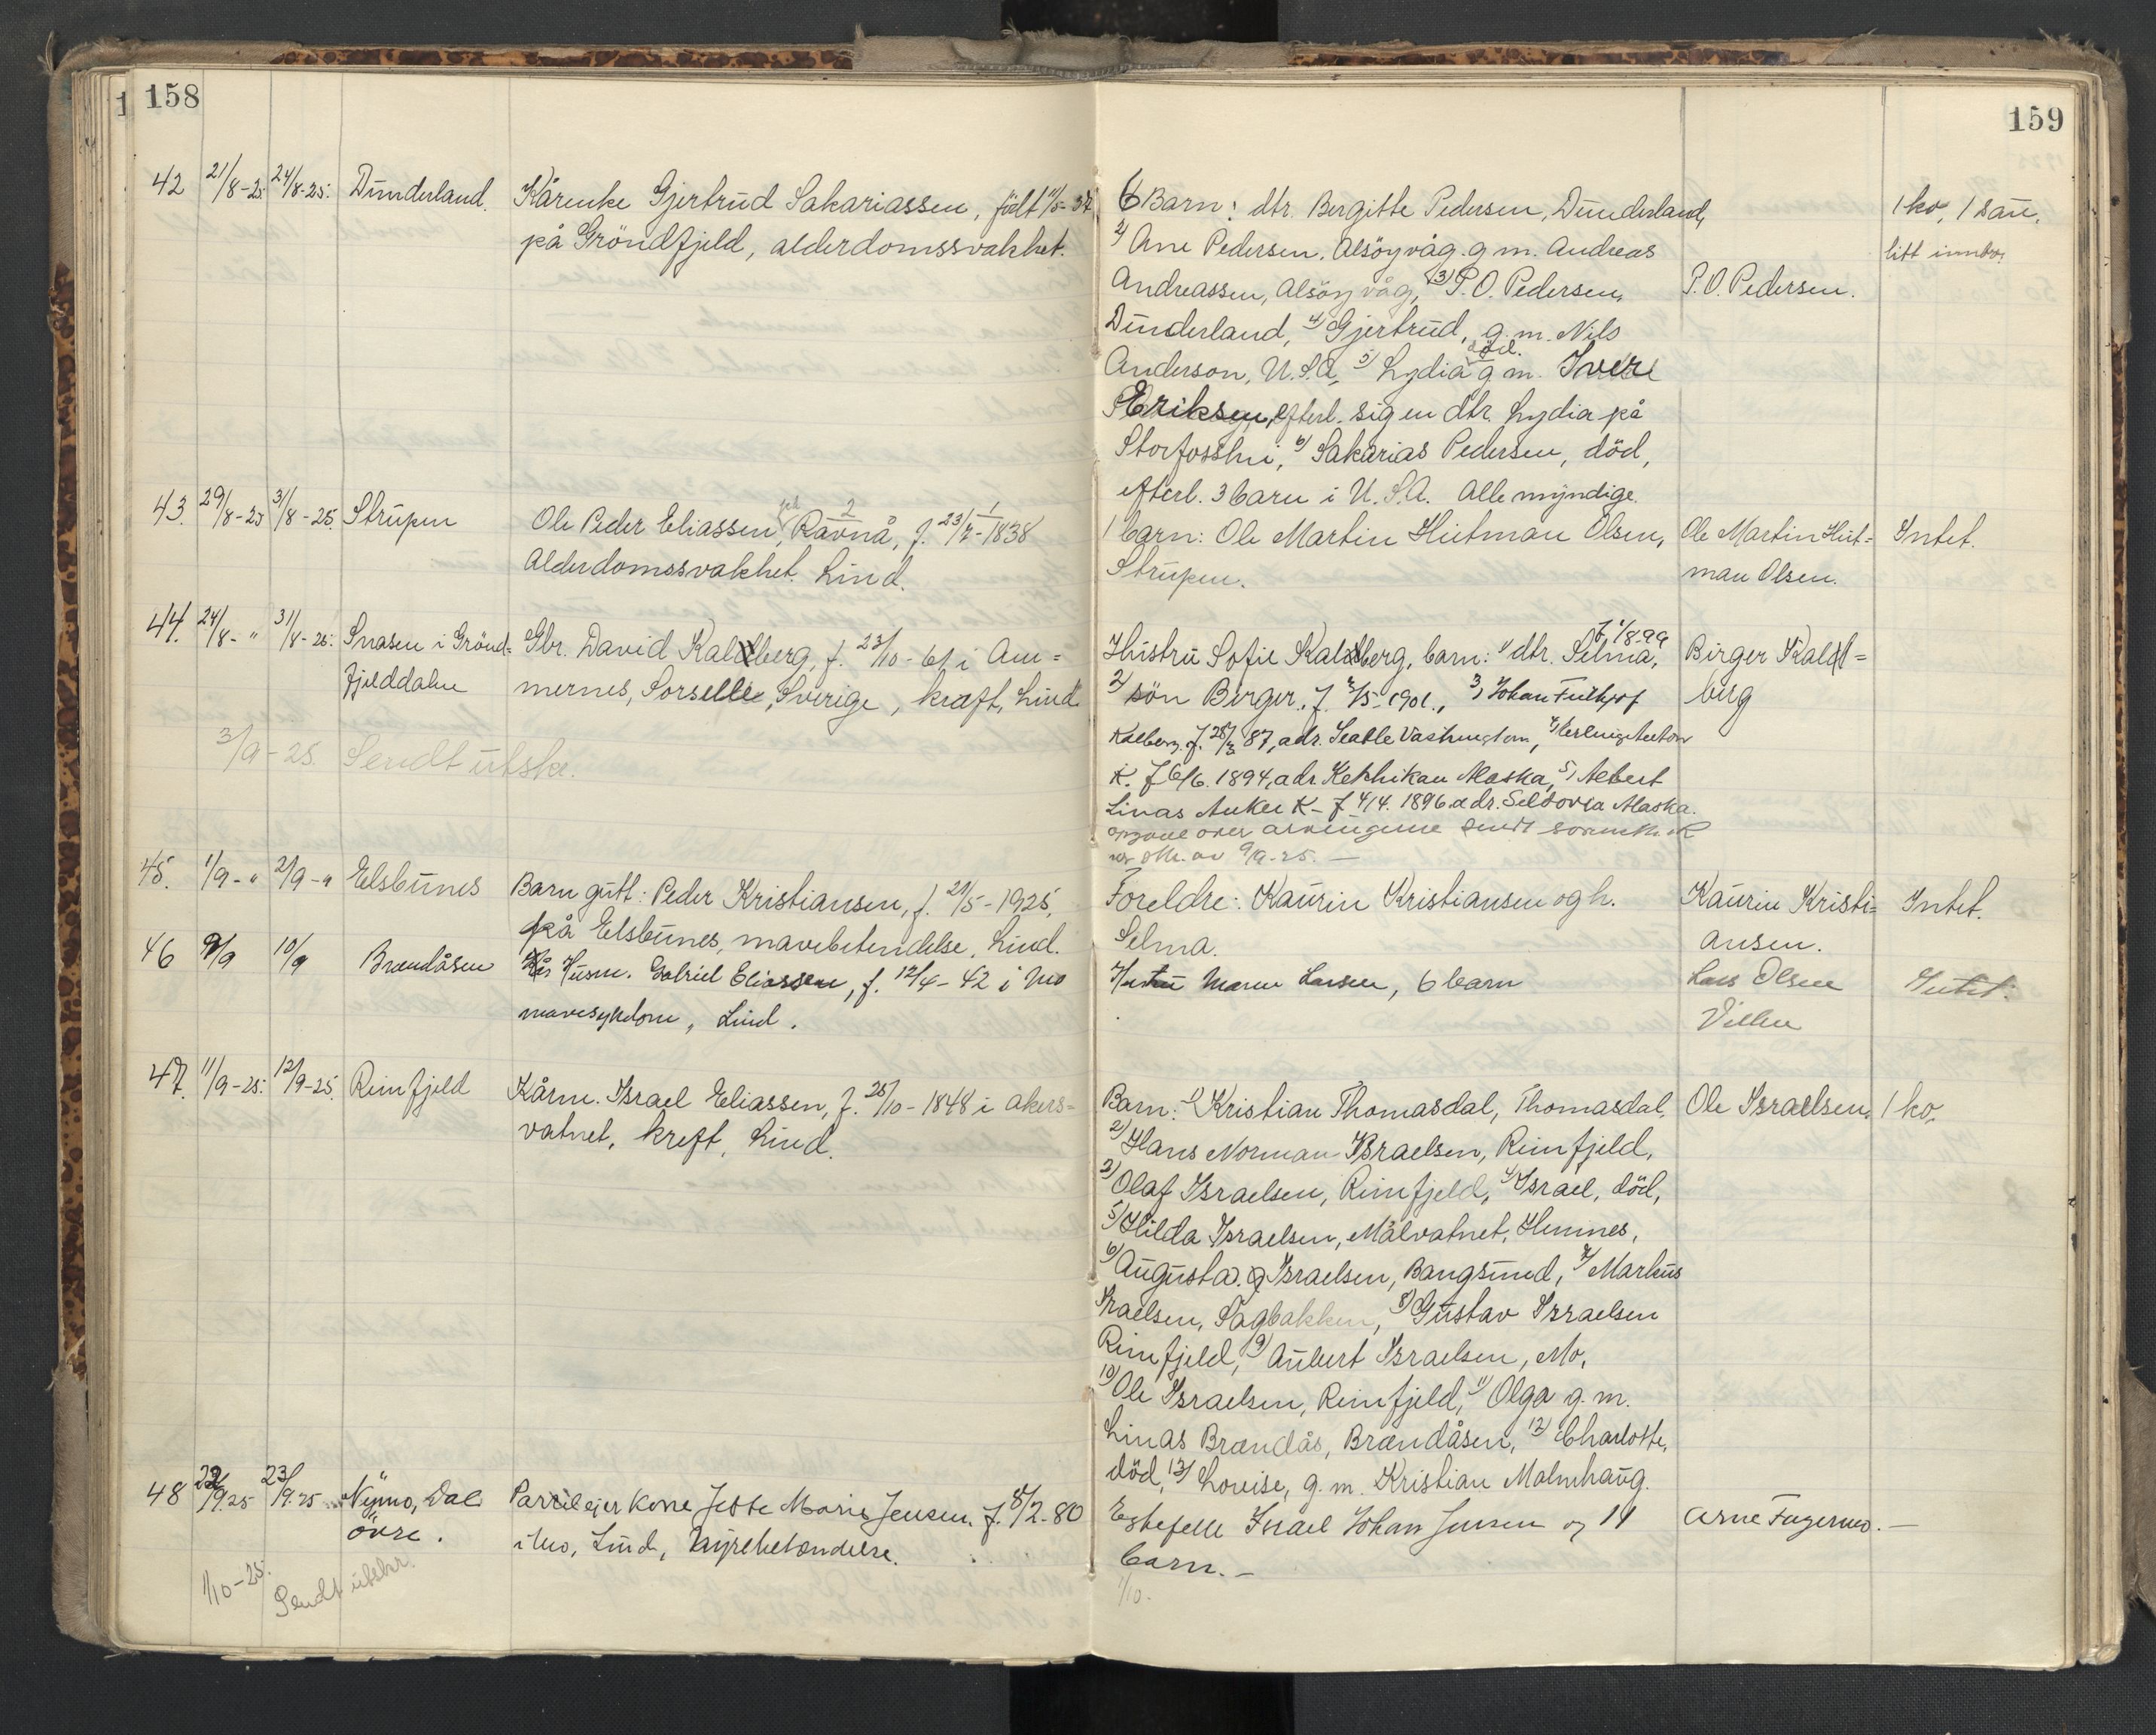 158
42 21/8-25. 24/8-25. Dunderland. Kårenke Gjertrud Sakariassen, født 11/5-37
på Gröndfjeld, alderdomssvakhet.
43. 29/8-25 31/8-25. Strupen Ole Peder Eliassen, Ravnå, f. 23/7-1838
Alderdomssvakhet. Lind.
44. 24/8-" 31/8-25. Snasen i Grönd= Gbr. David Kaldberg, f. 23/10-61 i Am=
fjelddalen mernes, Sorselle, Sverige, kræft, Lind.
3/9-25. Sendt utskr.
45. 1/9-" 2/9-" Elsbunes Barn gutt: Peder Kristiansen, f. 21/5-1925,
på Elsbunes, mavebetendelse. Lind.
46 9/9 10/9 Brændåsen Husm. Gabriel Eliassen, f. 12/4-42 i Mo
mavesykdom, Lind.
47. 11/9-25. 12/9-25. Reinfjeld Kårm. Israel Eliassen, f. 25/10-1848 i Akers=
vatnet, kreft, Lind.
48 22/9.25 23/9.25 Nymo, Dal Parselejerkone Jette Marie Jensen, f. 8/2-80
övre. i Mo, Lind, Nyrebetændelse.
1/10-25. Sendt utskr.
159
6 Barn: dtr. Bergitte Pedersen, Dunderland, 1 ko, 1 sau,
2) Ane Pedersen, Alsöyvåg. g m. Andreas litt innbo.
Andreassen, Alsöyvåg, 3) P.O. Pedersen, P.O. Pedersen.
Dunderland, 4) Gjertrud, g. m. Nils
Anderson, U.S.A, 5) Lydia död. g m. Iver
Eriksen, efterl. sig en dtr. Lydia på
Storfosshei, 6) Sakarias Pedersen, död,
efterl. 3 barn i U.S.A. Alle myndige.
1 barn: Ole Martin Hitman Olsen, Ole Martin Hit= Intet.
Strupen. man Olsen.
Hustru Sofie Kaldberg, barn: 1) dtr. Selma, f. 1/8-99 Birger Kald=
2) sön Birger, f. 2/5-1901., 3) Johan Fridhjof berg
Kalberg, f. 28/3 87, adr. Seatle Vashington, 4) Herluig Anton
K. f 6/6. 1894, adr. Ketchikan Alaska, 5) Albert
Linas Anker K- f 4/4. 1896 adr. Seldovia Alaska.
opgave over arvingerne sendt
av 9/9-25. —
Foreldre: Kaurin Kristiansen og h. Kaurin Kristi= Intet.
Selma. ansen.
Hustru Maren Larsen, 6 barn Lars Olsen Intet.
Villen
Barn: 1) Kristian Thomasdal, Thomasdal, Ole Israelsen, 1 ko.
2) Hans Norman Israelsen, Reinfjeld,
3) Olaf Israelsen, Reinfjeld, 4) Israel, död,
5) Hilda Israelsen, Målvatnet, Hemnes,
6) Augusta Israelsen, Bangsund, 7) Markus
Israelsen, Sagbakken, 8) Gustav Israelsen
Reinfjeld, 9) Aubert Israelsen, Mo,
10) Ole Israelsen, Reinfjeld, 11) Olga g. m.
Linas Brændås, Brændåsen, 12) Charlotte,
död, 13) Lovise, g. m. Kristian Malmhaug.
Egtefelle Israel Johan Jensen og 11 Arne Fagermo. —
barn. —
1/10-